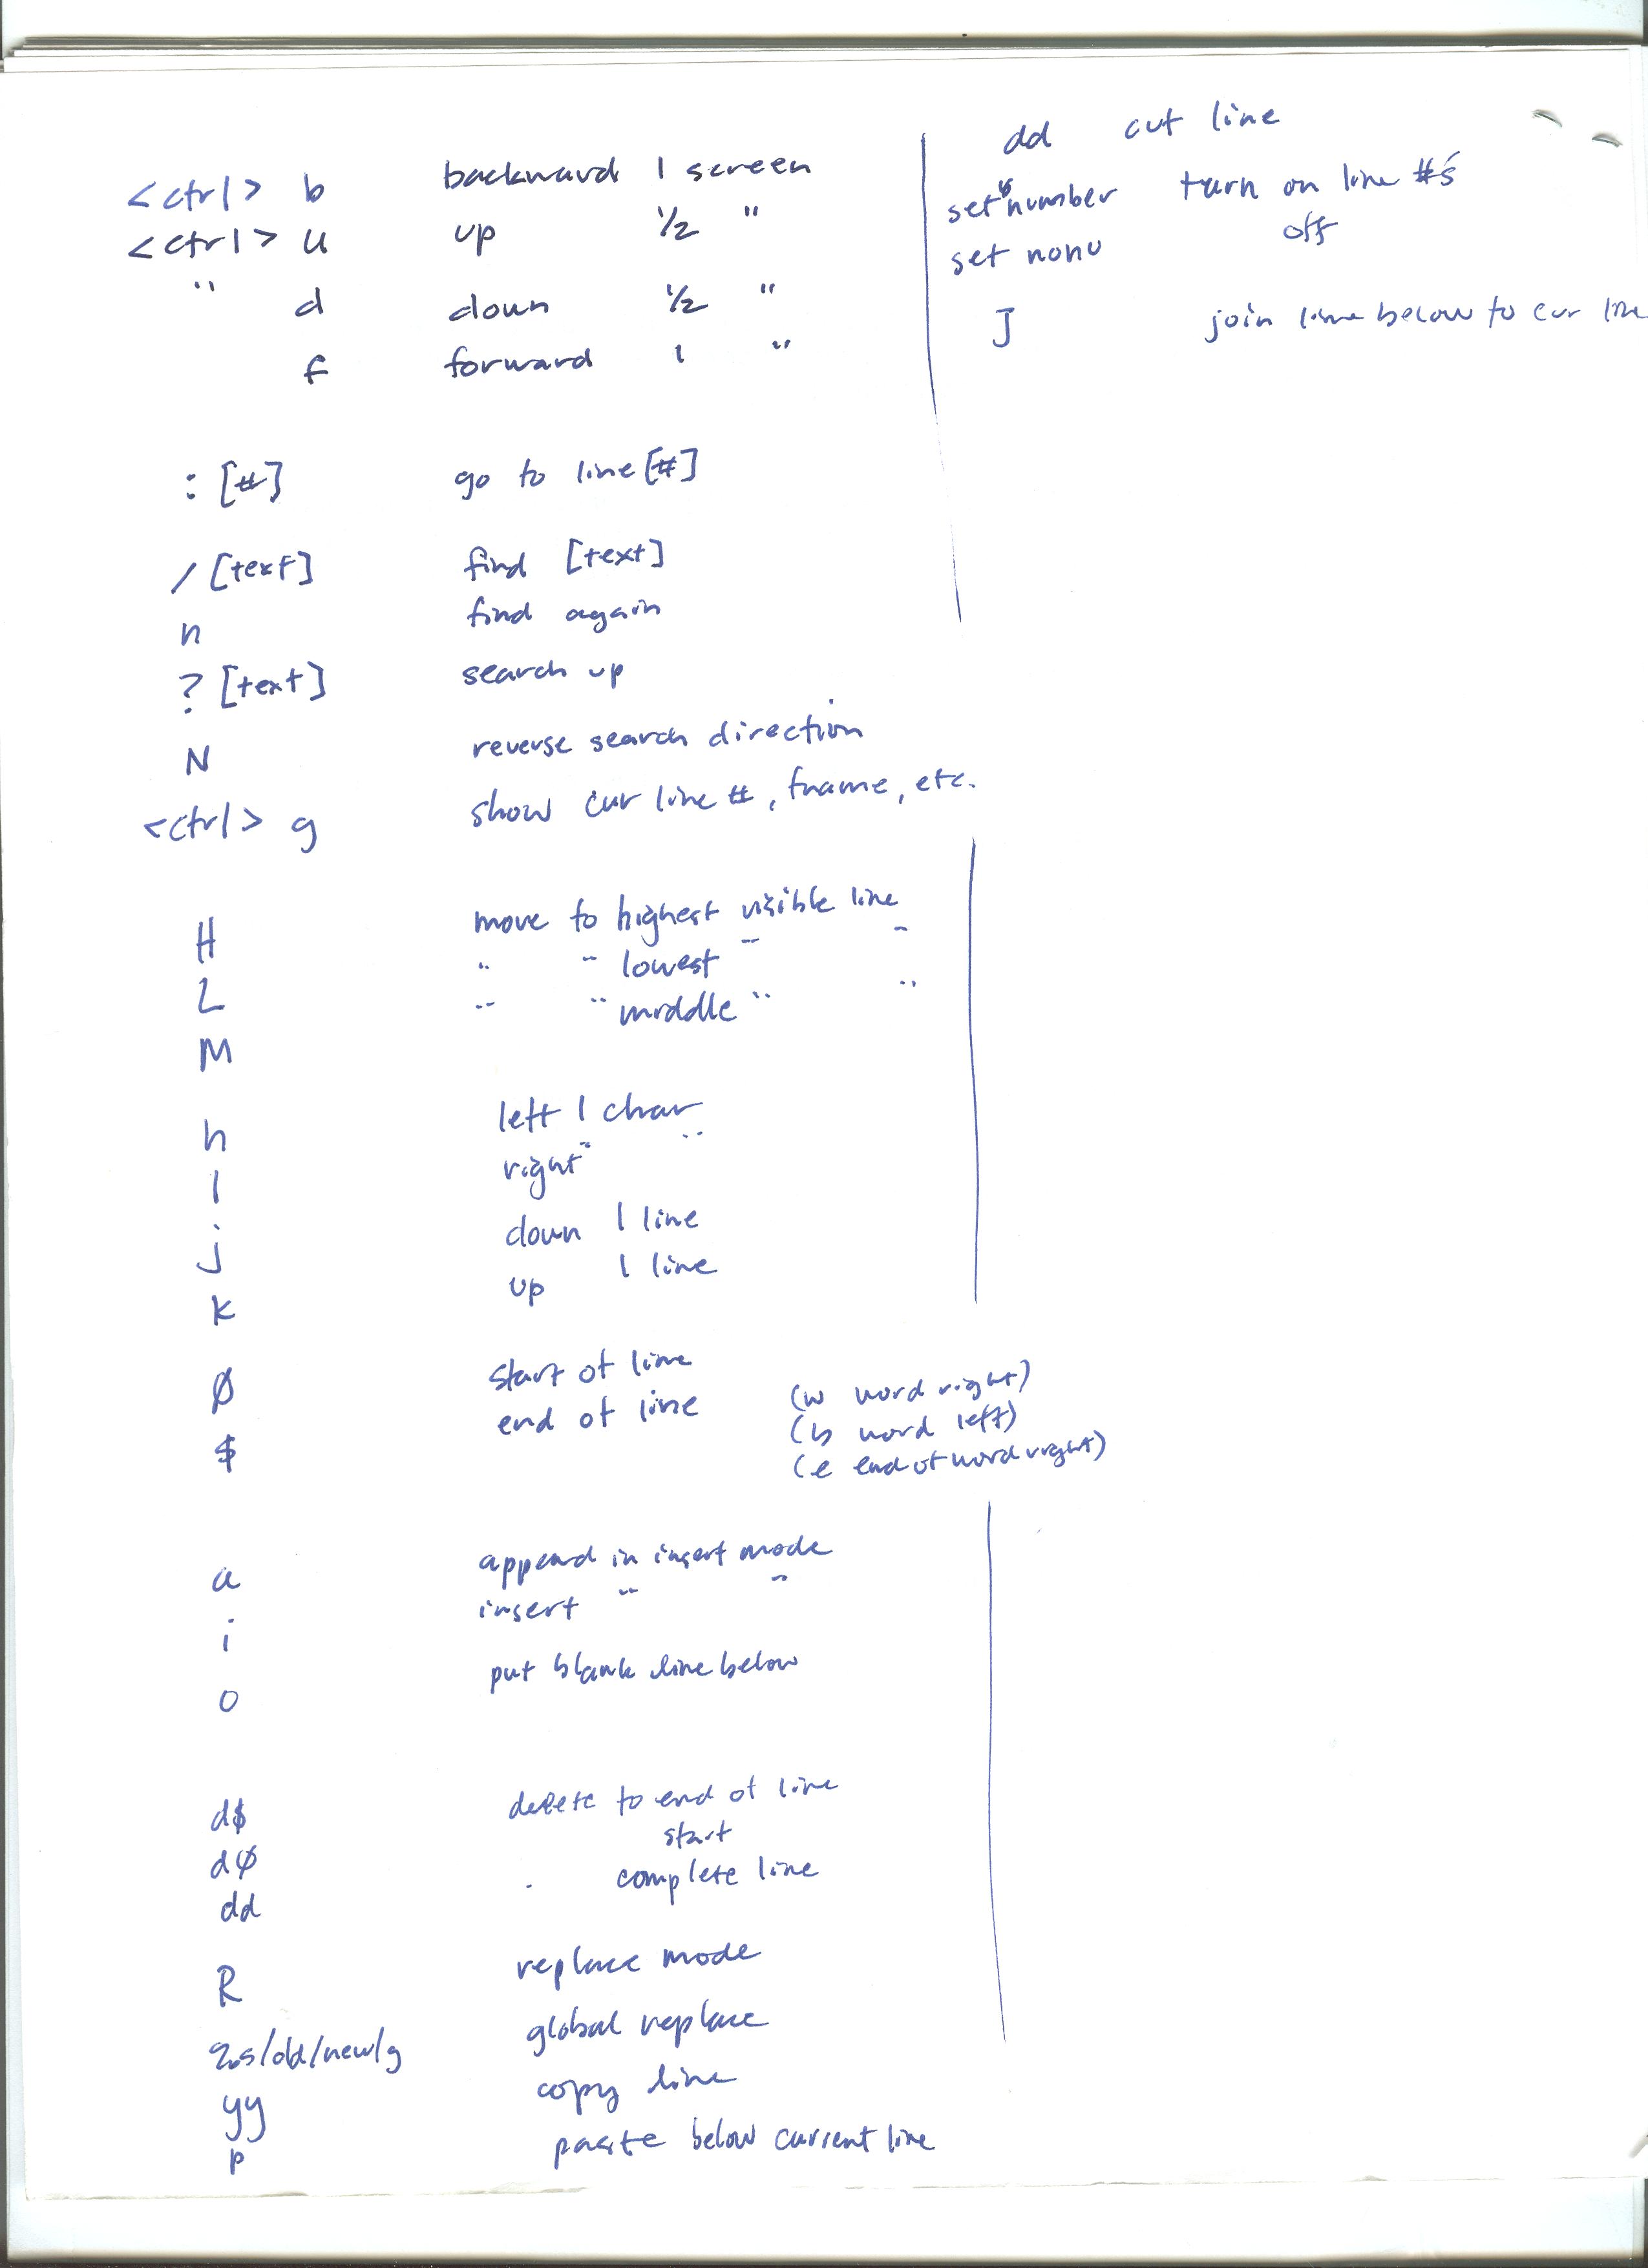 <ctrl> b backward 1 screen
<ctrl> u up 1/2 "
" d down 1/2 "
f forward 1 "
: [#] go to line [#]
/ [text] find [text]
n find again
? [text] search up
N reverse search direction
<ctrl> g show cur line #, fname, etc.
H move to highest visible line
L " " lowest " "
M " " middle " "
h left 1 char
l right " "
j down 1 line
k up 1 line
Ø start of line
$ end of line
(w word right)
(b word left)
(e end of word right)
a append in insert mode
i insert " "
o put blank line below
d$ delete to end of line
dØ start
dd complete line
R replace mode
%s/old/new/g global replace
yy copy line
p paste below current line
dd cut line
set number turn on line #'s
set nonu off
J join line below to cur line